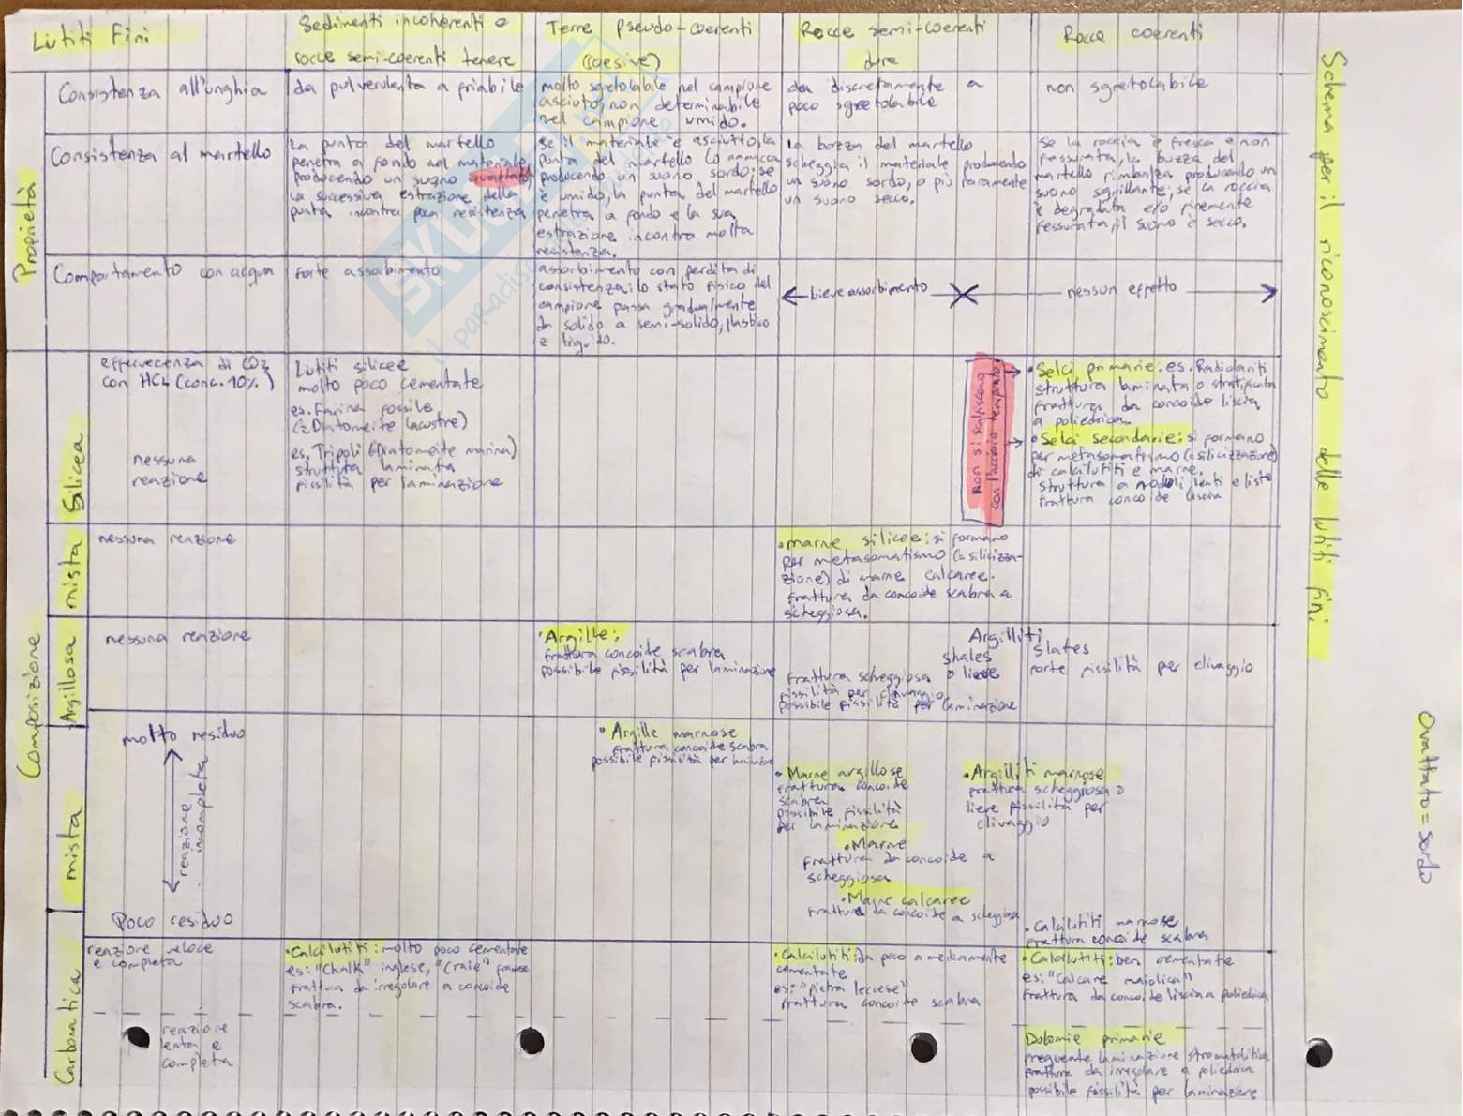 Lutiti Fini
Sedimenti incoherenti e
rocce semi-coerenti tenere
Terre pseudo-coerenti
(coesive)
Rocce semi-coerenti
dure
Rocce coerenti
Proprietà
Consistenza all'unghia
da pulverulenta a friabile
molto sgretolabile nel campione
asciutto, non determinabile
nel campione umido.
da discretamente a
poco sgretolabile
non sgretolabile
Consistenza al martello
La punta del martello
penetra a fondo nel materiale
producendo un suono ovattato,
la successiva estrazione della
punta incontra poca resistenza
se il materiale è asciutto, la
punta del martello lo ammacca
producendo un suono sordo; se
è umido, la punta del martello
penetra a fondo e la sua
estrazione incontra molta
resistenza.
la bozza del martello
scheggia il materiale producendo
un suono sordo, o più raramente
un suono secco.
se la roccia è fresca e non
fessurata, la bozza del
martello rimbalza producendo un
suono squillante; se la roccia
è degradata e/o finemente
fessurata, il suono è secco.
Comportamento con acqua
forte assorbimento
assorbimento con perdita di
consistenza: lo stato fisico del
campione passa gradualmente
da solido a semi-solido, plastico
e liquido.
lieve assorbimento
nessun effetto
Composizione
Silicea
effervescenza di CO2
con HCl (conc. 10%)
nessuna
reazione
Lutiti silicee
molto poco cementate
es. Farina fossile
(= Diatomite lacustre)
es. Tripoli (diatomite marina)
struttura laminata
fissilità per laminazione
Non si scalfiscono
con l'acciaio temprato
• Selci primarie: es. Radiolariti
struttura laminata o stratificata
frattura da concoide liscia
a poliedrica.
• Selci secondarie: si formano
per metasomatismo (=silicizzazione)
di calcilutiti e marne.
struttura a noduli, lenti e liste
frattura concoide liscia
mista
nessuna reazione
• marne silicee: si formano
per metasomatismo (=silicizza-
zione) di marne calcaree.
frattura da concoide scabra a
scheggiosa.
Argillosa
nessuna reazione
• Argille:
frattura concoide scabra
possibile fissilità per laminazione
Argilliti
shales
frattura scheggiosa o lieve
fissilità per clivaggio
possibile fissilità per laminazione
Slates
forte fissilità per clivaggio
mista
molto residuo
reazione
incompleta
Poco residuo
• Argille marnose
frattura concoide scabra
possibile fissilità per laminazione
• Marne argillose
frattura concoide
scabra
possibile fissilità
per laminazione
• Marne
frattura da concoide a
scheggiosa
• Marne calcaree
frattura da concoide a scheggiosa
• Argilliti marnose
frattura scheggiosa o
lieve fissilità per
clivaggio
• Calcilutiti marnose
frattura concoide scabra
Carbonatica
reazione veloce
e completa
• Calcilutiti: molto poco cementate
es: "Chalk" inglese, "Craie" francese
frattura da irregolare a concoide
scabra.
• Calcilutiti: da poco a mediamente
cementate
es: "pietra leccese"
frattura concoide scabra
• Calcilutiti: ben cementate
es: "Calcare maiolica"
frattura da concoide liscia a poliedrica
reazione
lenta e
completa
Dolomie primarie
frequente laminazione stromatolitica
frattura da irregolare a poliedrica
possibile fissilità per laminazione
Schema per il riconoscimento delle lutiti fini
Ovattato = sordo